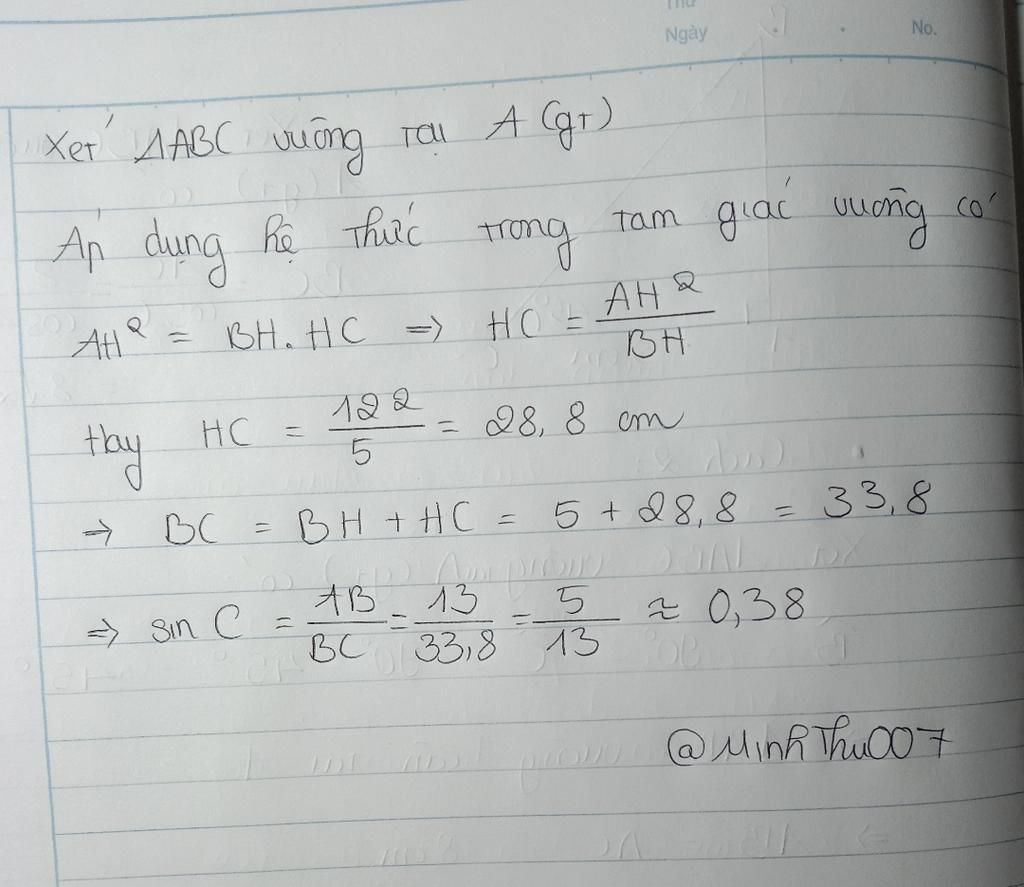 Thứ
Ngày No.
Xét ΔABC vuông tại A (gt)
Áp dụng hệ thức trong tam giác vuông có
AH² = BH. HC => HC = AH² / BH
Hay HC = 12² / 5 = 28,8 cm
=> BC = BH + HC = 5 + 28,8 = 33,8
=> sin C = AB / BC = 13 / 33,8 = 5 / 13 ≈ 0,38
@MinhThu007